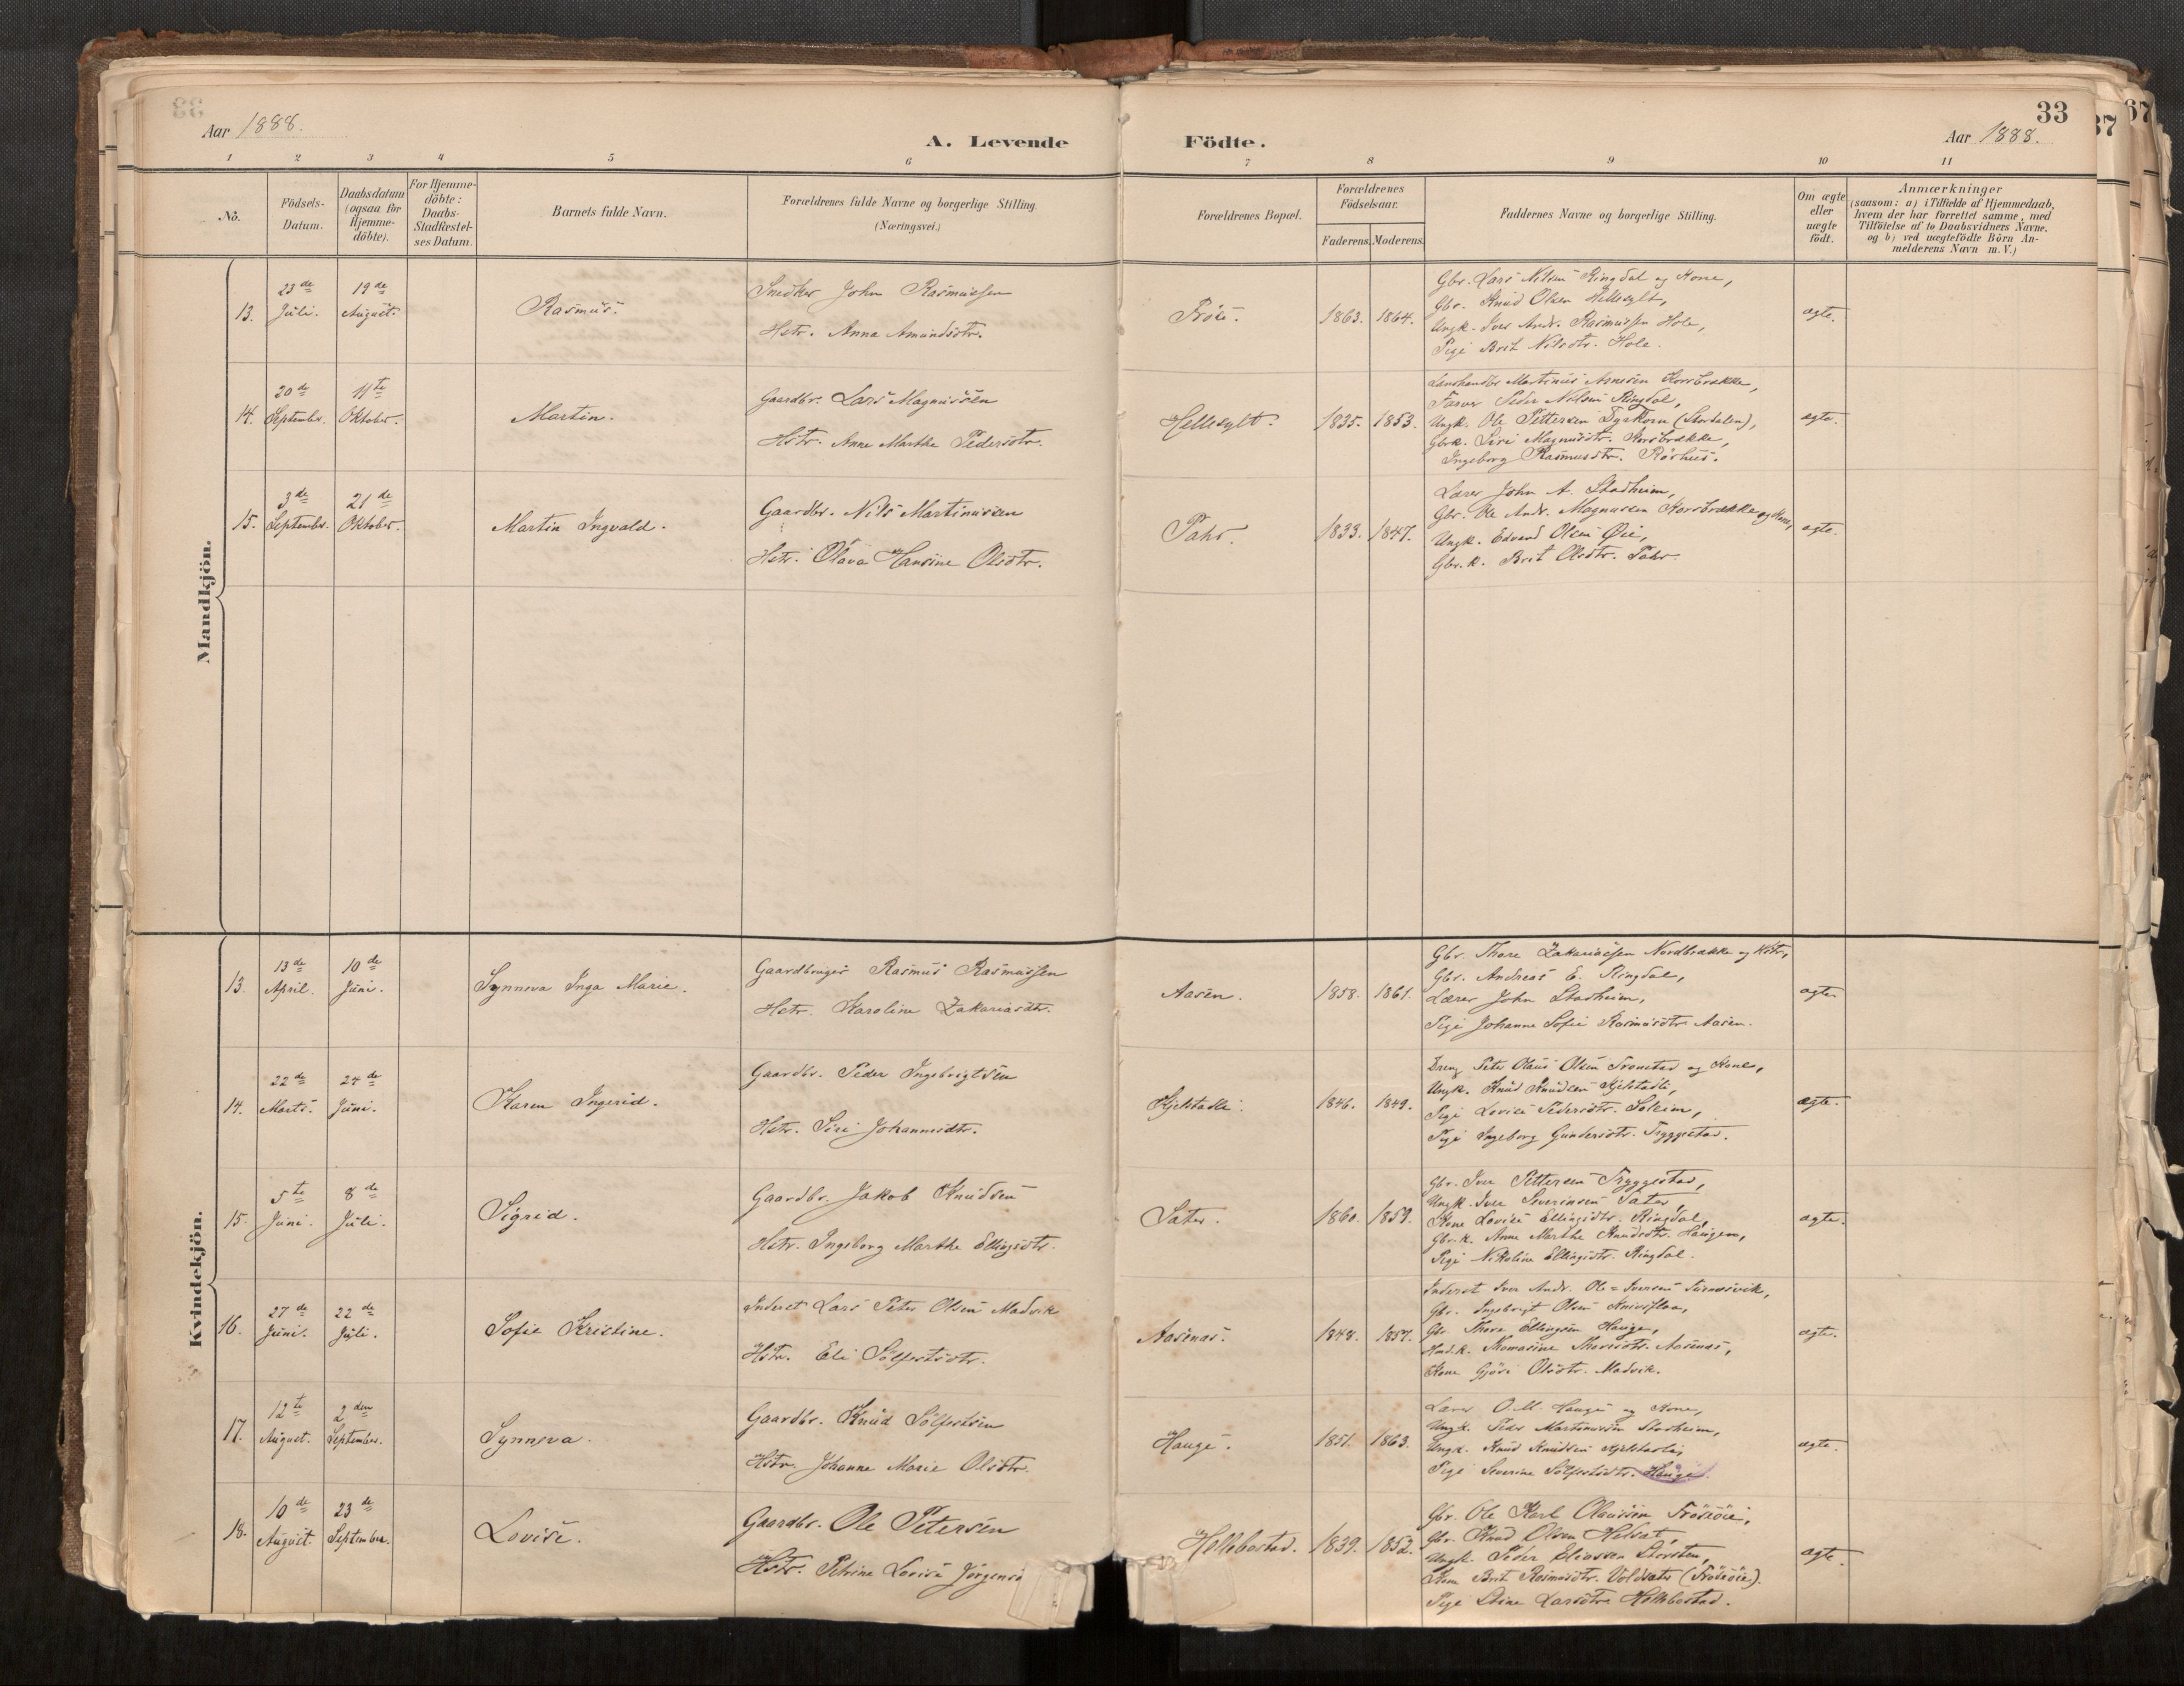 33
Aar 1888.
A. Levende Födte.
Aar 1888.
1 2 3 4 5 6 7 8 9 10 11
No.
Födsels-Datum.
Daabsdatum (ogsaa for Hjemme-döbte).
For Hjemme-döbte: Daabs-Stadfæstel-ses Datum.
Barnets fulde Navn.
Forældrenes fulde Navne og borgerlige Stilling.
(Næringsvei.)
Forældrenes Bopæl.
Forældrenes Födselsaar.
Faderens. Moderens.
Faddernes Navne og borgerlige Stilling.
Om ægte eller uægte födt.
Anmærkninger
(saasom: a) i Tilfælde af Hjemmedaab,
hvem der har forrettet samme, med
Tilföielse af to Daabsvidners Navne.
og b) ved uægtefödte Börn An-
melderens Navn m.V.)
Mandkjön.
13. 23de Juli. 19de August. Rasmus.
Snedker John Rasmussen
Hstr. Anna Amundsdtr.
1863. 1864.
Gbr. Lars Nilsen Ringdal og Kone,
Gbr. Knud Olsen Hellesylt,
Ungk. Iver Andr. Rasmussen Hole,
Pige Brit Nilsdtr. Hole.
ægte.
14. 20de September. 11te Oktober. Martin.
Gaardbr. Lars Magnussen
Hstr. Anne Marthe Pedersdtr.
Hellesylt. 1835. 1853.
Landhandler Martinus Arnesen Korsbrække,
Farver Peder Nilsen Ringdal,
Ungk. Ole Pettersen Dyrkorn (Stordalen),
Gbrk. Siri Magnusdtr. Korsbrække,
Ingeborg Rasmusdtr. Rörhus.
ægte.
15. 3de September. 21de Oktober. Martin Ingvald.
Gaardbr. Nils Martinussen
Hstr. Olava Hansine Olsdtr.
Tahr. 1833. 1847.
Lærer John A. Stadheim,
Gbr. Ole Andr. Magnussen Korsbrække og Kone,
Ungk. Edvard Olsen Øie,
Gbr. k. Brit Olsdtr. Tahr.
ægte.
Kvindekjön.
13. 13de April. 10de Juni. Synneva Inga Marie.
Gaardbruger Rasmus Rasmussen
Hstr. Karoline Zakariasdtr.
Aasen. 1858. 1861.
Gbr. Thore Zakariasen Nordbrække og Hstr,
Gbr. Andreas E. Ringdal,
Lærer John Stadheim,
Pige Johanne Sofie Rasmusdtr. Aasen.
ægte
14. 22de Marts. 24de Juni. Karen Ingerid.
Gaardbr. Peder Ingebrigtsen
Hstr. Siri Johannesdtr.
Kjelstadli. 1846. 1849.
Dreng Peter Olaus Olsen Tronstad og Kone,
Ungk. Knud Knudsen Kjelstadli,
Pige Lovise Pedersdtr. Soleim,
Pige Ingeborg Gundersdtr. Tryggestad.
ægte.
15. 5te Juni. 8de Juli. Sigrid.
Gaardbr. Jakob Knudsen
Hstr. Ingeborg Marthe Ellingsdtr.
Sater. 1860. 1859.
Gbr. Iver Pettersen Tryggestad,
Ungk. Iver Severinsen Sater,
Kone Lovise Ellingsdtr. Ringdal,
Gbr.k. Anne Marthe Knudsdtr. Haugen,
Pige Nikoline Ellingsdtr. Ringdal.
ægte.
16. 27de Juni. 22de Juli. Sofie Kristine.
Inderst Lars Peter Olsen Madvik
Hstr. Eli Sölfestsdtr.
Aasenæs. 1848. 1857.
Inderst Iver Andr. Ole=Iversen
Gbr. Ingebrigt Olsen Knivsflaa,
Gbr Thore Ellingsen Hauge,
Hmd.k. Thomasine Thoresdtr. Aasenæs,
Kone Gjöri Olsdtr. Madvik.
ægte.
17. 12te August. 2den September. Synneva.
Gaardbr. Knud Sölfestsen
Hstr. Johanne Marie Olsdtr.
Hauge. 1851. 1863.
Lærer O. M. Hauge og Kone,
Ungk. Peder Martinussen Stadheim,
Ungk. Knud Knudsen Kjelstadli,
Pige Severine Sölfestsdtr. Hauge.
ægte.
18. 10de August. 23de September. Lovise.
Gaardbr. Ole Petersen
Hstr. Petrine Lovise Jörgens
Hellebostad. 1839. 1852.
Gbr. Ole Karl Olaussen Fröisöie,
Gbr. Knud Olsen Helsæt,
Ungk. Peder Eliassen Storsten,
Kone Brit Rasmusdtr. Voldsæter (Fröisöie).
Pige Stine Larsdtr. Hellebostad.
ægte.